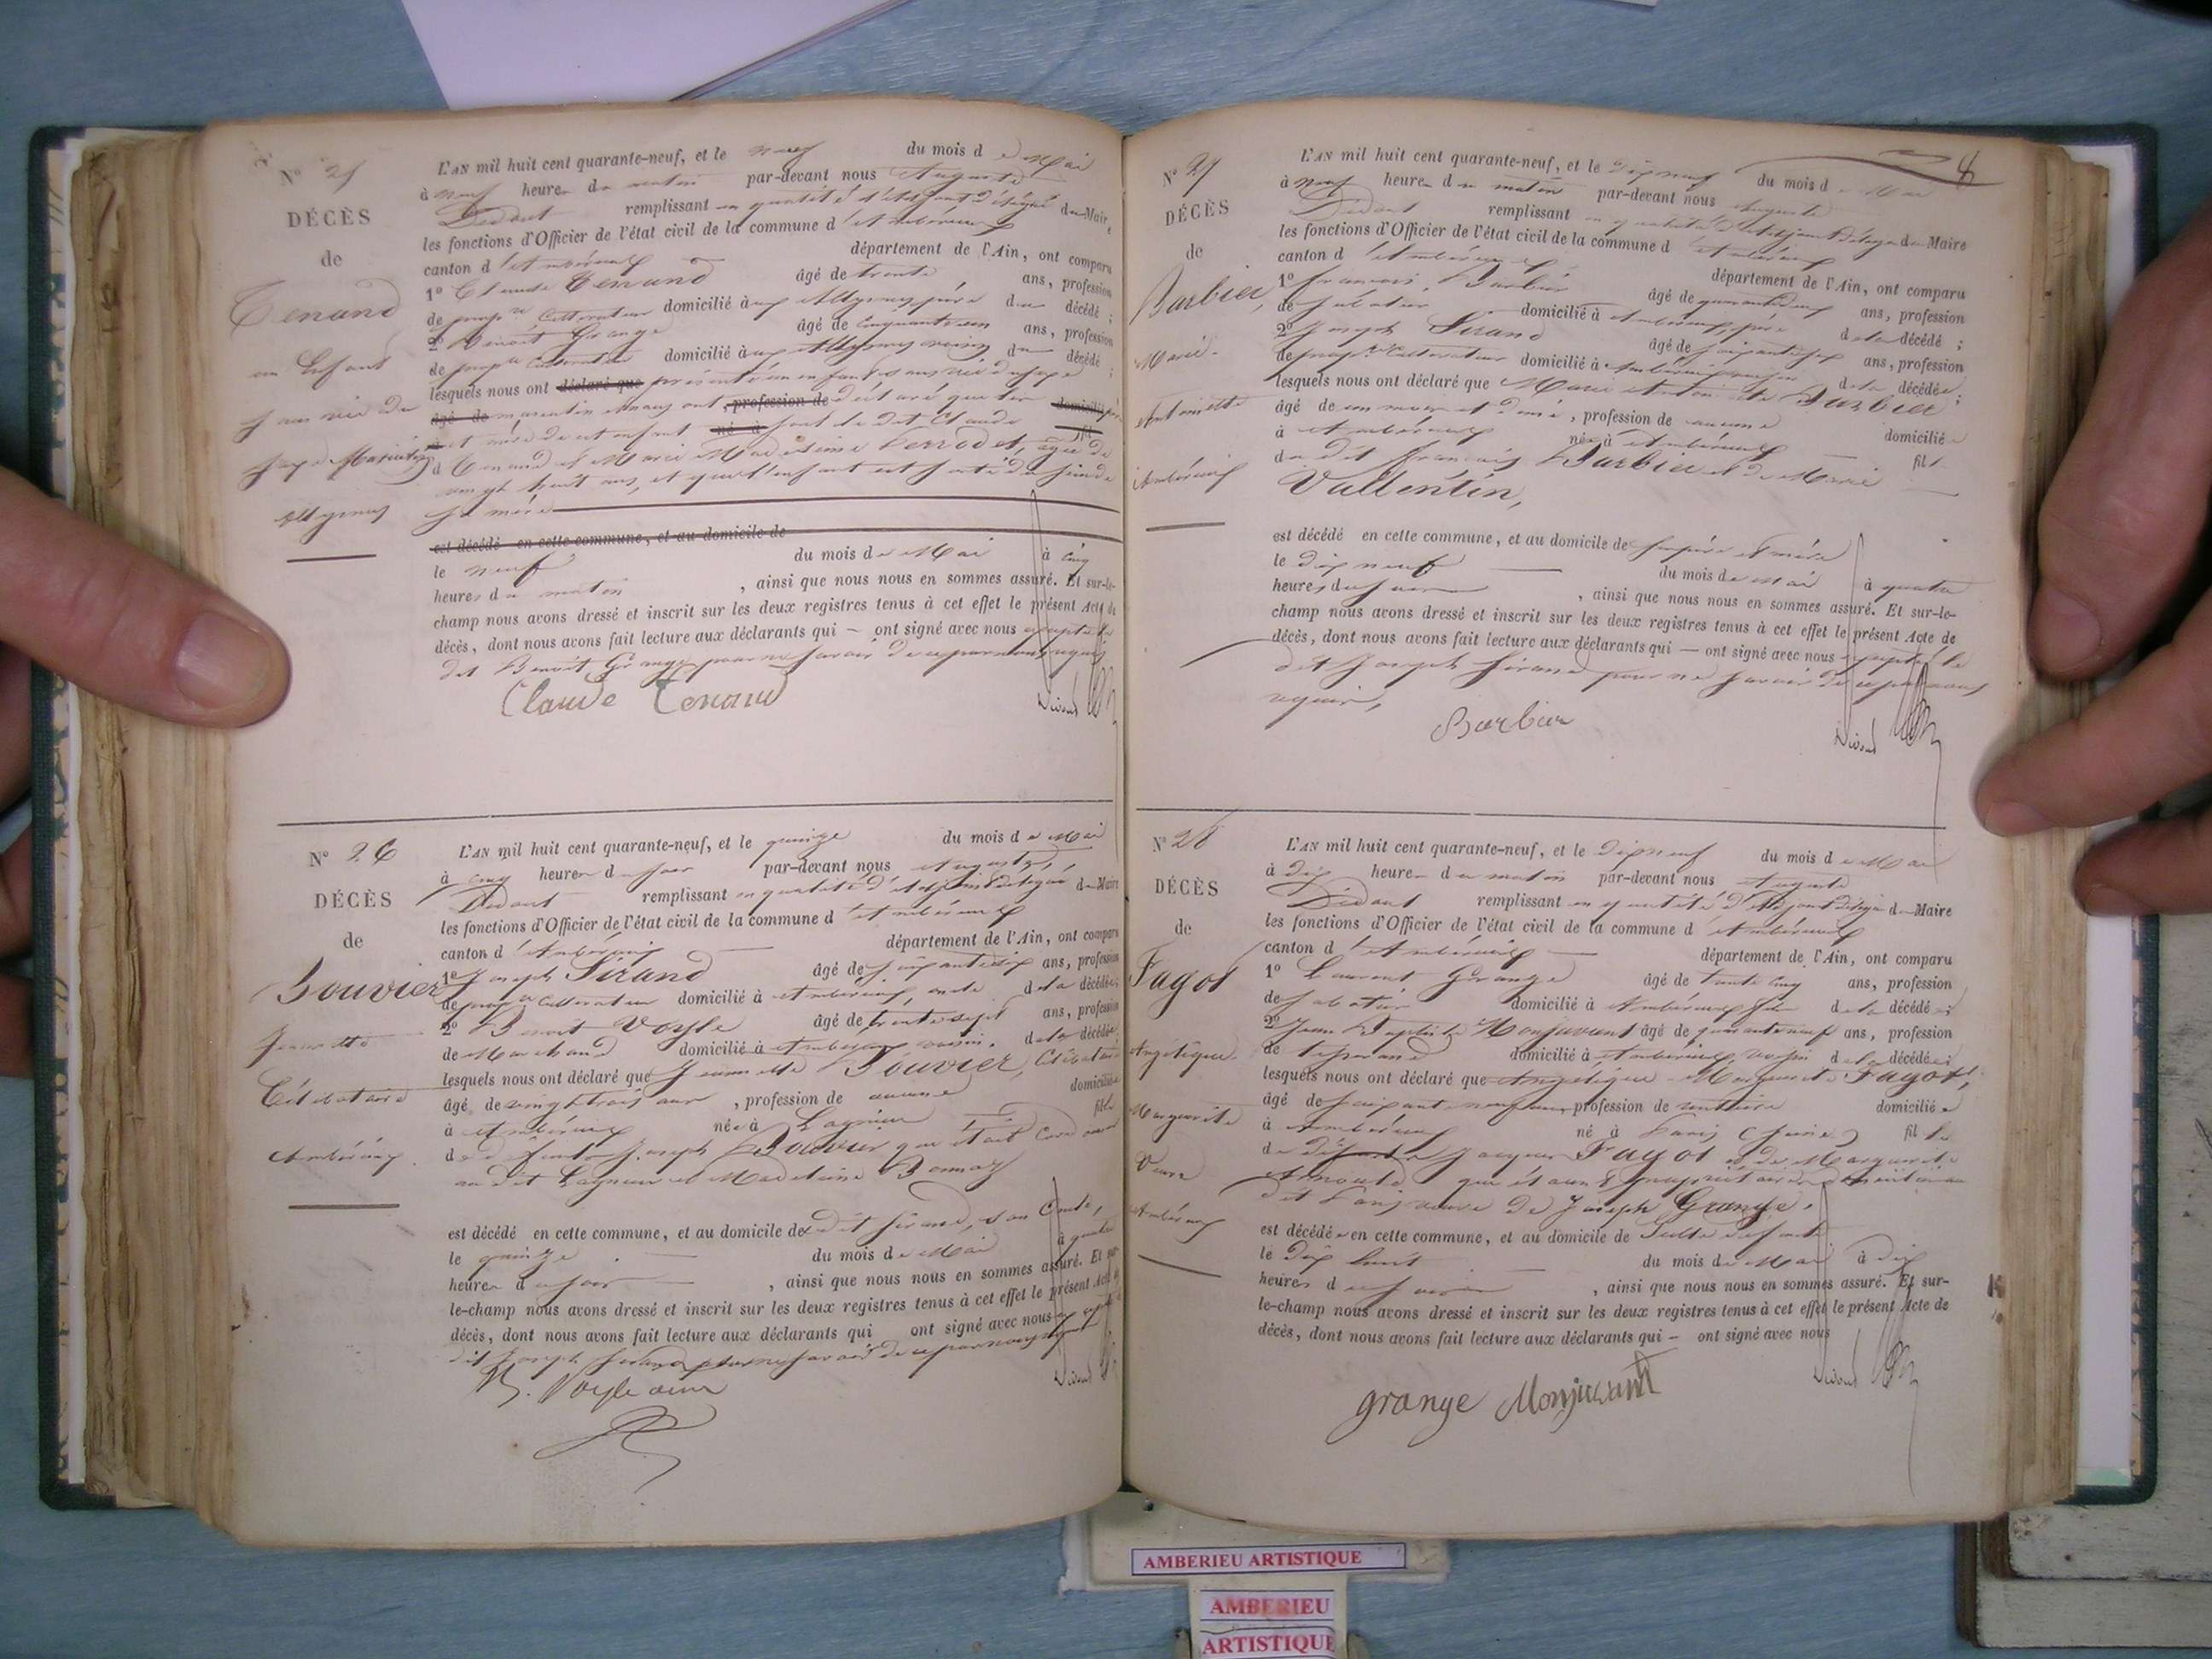 N° 25
DÉCÈS
de
Tenand
un Enfant
sans vie du
sexe Masculin
L'AN mil huit cent quarante-neuf, et le neuf du mois de Mai
à neuf heures du matin par-devant nous Auguste
Didout remplissant en qualité d'Adjoint délégué du Maire
les fonctions d'Officier de l'état civil de la commune d'Ambérieux
canton d'Ambérieux département de l'Ain, ont comparu
1° Claude Tenand âgé de trente ans, profession
de prop.re Cultivateur domicilié à père du décédé ;
2° Benoit Grange âgé de Cinquante un ans, profession
de prop.re Cultivateur domicilié à voisin du décédé ;
lesquels nous ont déclaré que présenté un enfant sans vie du sexe
âgé de masculin et nous ont profession de déclaré que domicilié
et mère de cet enfant né à sont le dit Claude fil
d Tenand et Marie Perrodet, âgée de
vingt huit ans, et que l'enfant est sorti du sein de
sa mère
est décédé en cette commune, et au domicile de
le neuf du mois de Mai à cinq
heures du matin , ainsi que nous nous en sommes assuré. Et sur-le-
champ nous avons dressé et inscrit sur les deux registres tenus à cet effet le présent Acte de
décès, dont nous avons fait lecture aux déclarants qui — ont signé avec nous excepté le
dit Benoit Grange pour ne savoir de ce par nous requis
Claude Tenand
Didout
N° 26
DÉCÈS
de
Bouvier
Jeannette
Célibataire
Ambérieux
L'AN mil huit cent quarante-neuf, et le quinze du mois de Mai
à cinq heures du soir par-devant nous Auguste
Didout remplissant en qualité d'Adjoint délégué du Maire
les fonctions d'Officier de l'état civil de la commune d'Ambérieux
canton d'Ambérieux département de l'Ain, ont comparu
1° Joseph Sirand âgé de soixante six ans, profession
de prop.re Cultivateur domicilié à Ambérieux, oncle de la décédée ;
2° Benoit Voyle âgé de trente sept ans, profession
de Marchand domicilié à Ambérieux voisin de la décédée
lesquels nous ont déclaré que Jeannette Bouvier, Célibataire
âgé de vingt trois ans , profession de aucune domiciliée
à Ambérieux née à Lagnieu fille
de défunt Joseph Bouvier qui était
au dit Lagnieu et Madeleine Bonnaz
est décédé en cette commune, et au domicile de dit Sirand, son Oncle,
le quinze du mois de Mai à quatre
heures du soir , ainsi que nous nous en sommes assuré. Et sur-
le-champ nous avons dressé et inscrit sur les deux registres tenus à cet effet le présent Acte de
décès, dont nous avons fait lecture aux déclarants qui ont signé avec nous
dit Joseph Sirand pour ne savoir de ce par nous requis
B. Voyle
Didout
8
N° 27
DÉCÈS
de
Barbier,
Marie-
Antoinette
Ambérieux
L'AN mil huit cent quarante-neuf, et le dix neuf du mois de Mai
à neuf heures du matin par-devant nous Auguste
Didout remplissant en qualité d'Adjoint délégué du Maire
les fonctions d'Officier de l'état civil de la commune d'Ambérieux
canton d'Ambérieux département de l'Ain, ont comparu
1° François Barbier âgé de ans, profession
de sabotier domicilié à Ambérieux, père de la décédé ;
2° Joseph Sirand âgé de soixante six ans, profession
de prop.re Cultivateur domicilié à Ambérieux voisin de la décédée ;
lesquels nous ont déclaré que Marie Antoinette Barbier
âgé de un mois et demi , profession de aucune domiciliée
à Ambérieux née à Ambérieux fil
du dit François Barbier et de Marie
Vallentin,
est décédé en cette commune, et au domicile de ses père et mère
le dix neuf du mois de Mai à quatre
heures du , ainsi que nous nous en sommes assuré. Et sur-le-
champ nous avons dressé et inscrit sur les deux registres tenus à cet effet le présent Acte de
décès, dont nous avons fait lecture aux déclarants qui — ont signé avec nous excepté le
dit Joseph Sirand pour ne savoir de ce par nous
requis,
Barbier
Didout
N° 28
DÉCÈS
de
Fagot
Angélique
Marguerite
Veuve
Ambérieux
L'AN mil huit cent quarante-neuf, et le dix neuf du mois de Mai
à dix heures du matin par-devant nous Auguste
Didout remplissant en qualité d'Adjoint délégué du Maire
les fonctions d'Officier de l'état civil de la commune d'Ambérieux
canton d'Ambérieux département de l'Ain, ont comparu
1° Laurent Grange âgé de trente cinq ans, profession
de sabotier domicilié à Ambérieux fils de la décédée ;
2° Jean Baptiste Monjuvent âgé de quarante neuf ans, profession
de tisserand domicilié à Ambérieux voisin de la décédée ;
lesquels nous ont déclaré que Angélique Marguerite Fagot,
âgé de soixante neuf ans, profession de rentière domiciliée
à Ambérieux né à Paris (Seine) fille
de défunts Jacques Fagot et de Marguerite
Arnould qui étaient propriétaires
dit Paris veuve de Joseph Grange,
est décédée en cette commune, et au domicile de
le dix huit du mois de Mai à dix
heures du soir , ainsi que nous nous en sommes assuré. Et sur-
le-champ nous avons dressé et inscrit sur les deux registres tenus à cet effet le présent Acte de
décès, dont nous avons fait lecture aux déclarants qui — ont signé avec nous
grange Monjuvent
Didout
AMBERIEU ARTISTIQUE
AMBERIEU
ARTISTIQUE